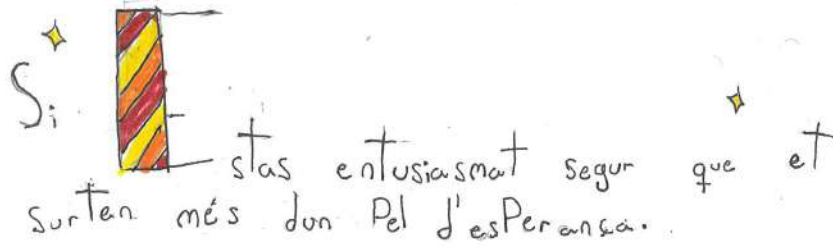 Si Estas entusiasmat segur que et
surten més dun Pel d'esPeransa.